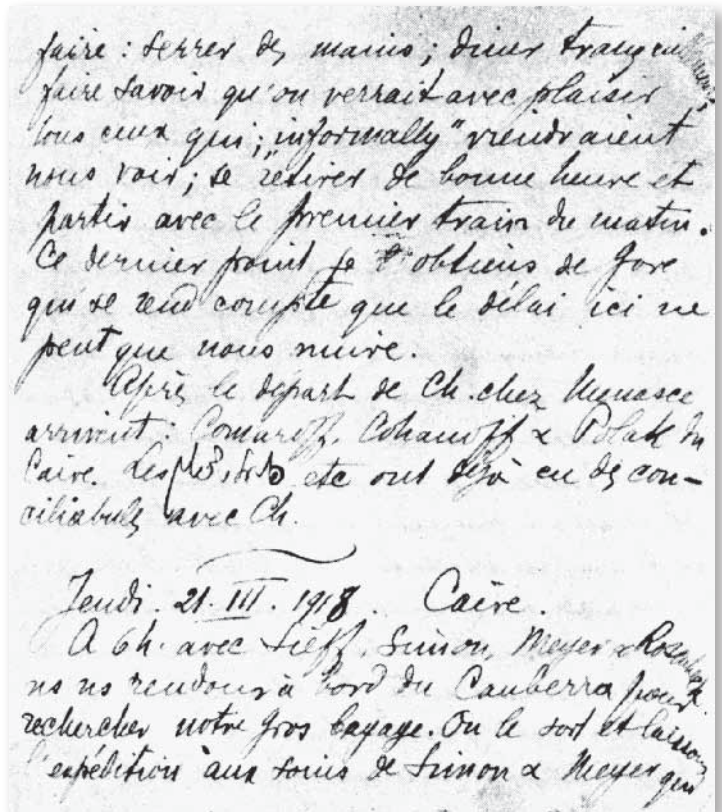 faire : serrer des mains ; diner tranquillement,
faire savoir qu'on verrait avec plaisir
tous ceux qui, „informally” viendraient
nous voir ; se retirer de bonne heure et
partir avec le premier train du matin.
Ce dernier point je l'obtiens de Gore
qui se rend compte que le délai ici ne
peut que nous nuire.
Après le départ de Ch. chez Menasce
arrivent : Comaroff, Cohanoff & Polak du
Caire. Les etc ont déjà eu des con-
ciliabules avec Ch.
Jeudi. 21. III. 1918. Caire.
A 6h. avec Sieff, Simon, Meyer &
ns ns rendons à bord du Canberra pour
rechercher notre gros bagage. On le sort et laissons
l'expédition aux soins de Simon & Meyer qui